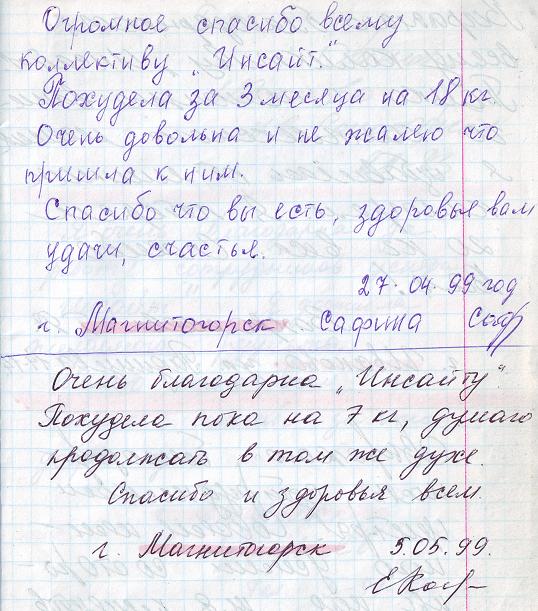 Огромное спасибо всему
коллективу „Инсайт."
Похудела за 3 месяца на 18 кг.
Очень довольна и не жалею что
пришла к ним.
Спасибо что вы есть, здоровья вам
удачи, счастья.
27.04.99 год
г. Магнитогорск Сафина Саф
Очень благодарна „Инсайту".
Похудела пока на 7 кг, думаю
продолжать в том же духе.
Спасибо и здоровья всем.
г. Магнитогорск 5.05.99.